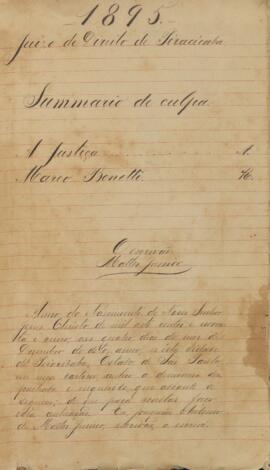 1895.
Juizo de Direito de Piracicaba
Summario de culpa
A Justiça A.
Marco Bonetti R.
O escrivão
Mattos Junior
Anno do Nascimento de Nosso Senhor
Jesus Christo de mil oito centos e noven-
ta e cinco, aos quatro dias do mez de
Dezembro do dito anno, n'esta cidade
de Piracicaba, Estado de São Paulo
em meu cartorio autuo a denuncia da
promotoria e inquerito que adiante se
seguem; do que para constar faço
esta autuação. Eu Joaquim
de Mattos Junior, escrivão, o escrevi.